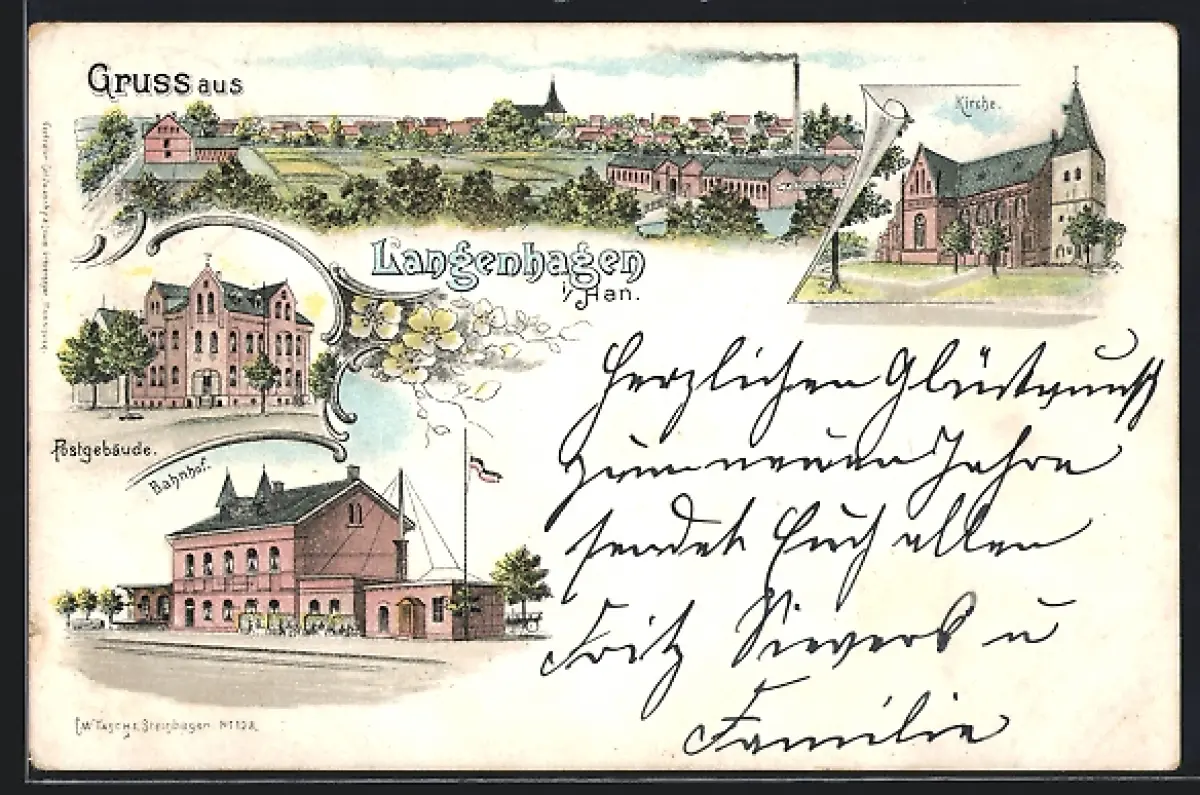 Gruss aus
Kirche.
Langenhagen
i/Han.
Postgebäude.
Bahnhof.
Herzlichen Glückwunsch
zum neuen Jahre
sendet Euch allen
Fritz Sievers u
Familie
F.W. Tasche, Steinhagen No 12A